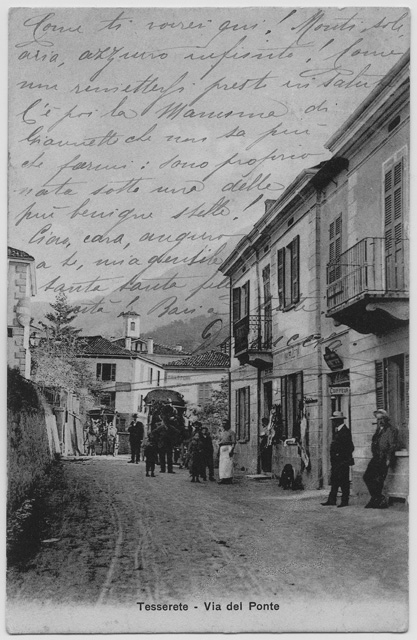 Come ti vorrei qui! Monti, sole
aria, azzurro infinito! Come
mi rimetterei presto in salute
C'è poi la Mamma di
Giannetto che non sa più
che farmi: sono proprio
nata sotto una delle
più benigne stelle!
Ciao, cara, auguro
a te, mia gentile
santa santa
Baci
Tesserete - Via del Ponte